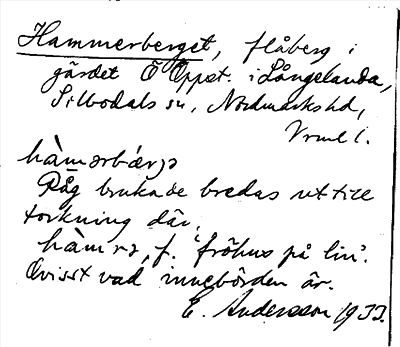 Hammerberget, flåberg i
gärdet Ö Öppst. i Långelanda,
Silbodals sn, Nordmarks hd,
Vrml l.
hàmərbǽrjə
Råg brukade bredas ut till
torkning där.
hàmrə, f. 'fröhus på lin'.
Ovisst vad innebörden är.
E. Andersson 1933.